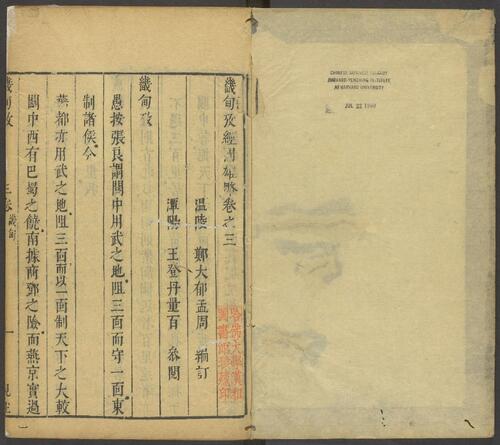 CHINESE-JAPANESE LIBRARY
HARVARD-YENCHING INSTITUTE
AT HARVARD UNIVERSITY
JUL 22 1940
畿甸攷經國雄略卷之三
温陵 鄭大郁孟周 編訂
潭陽 王登丹量百 叅閱
畿甸攷
愚按張良謂關中用武之地阻三面而守一面東
制諸侯今
燕都亦用武之地阻三面而以一面制天下之大較
關中西有巴蜀之饒南據商鄧之險而燕京實過
畿甸攷
三卷畿甸
一
哈佛大學漢和
圖書館珍藏印